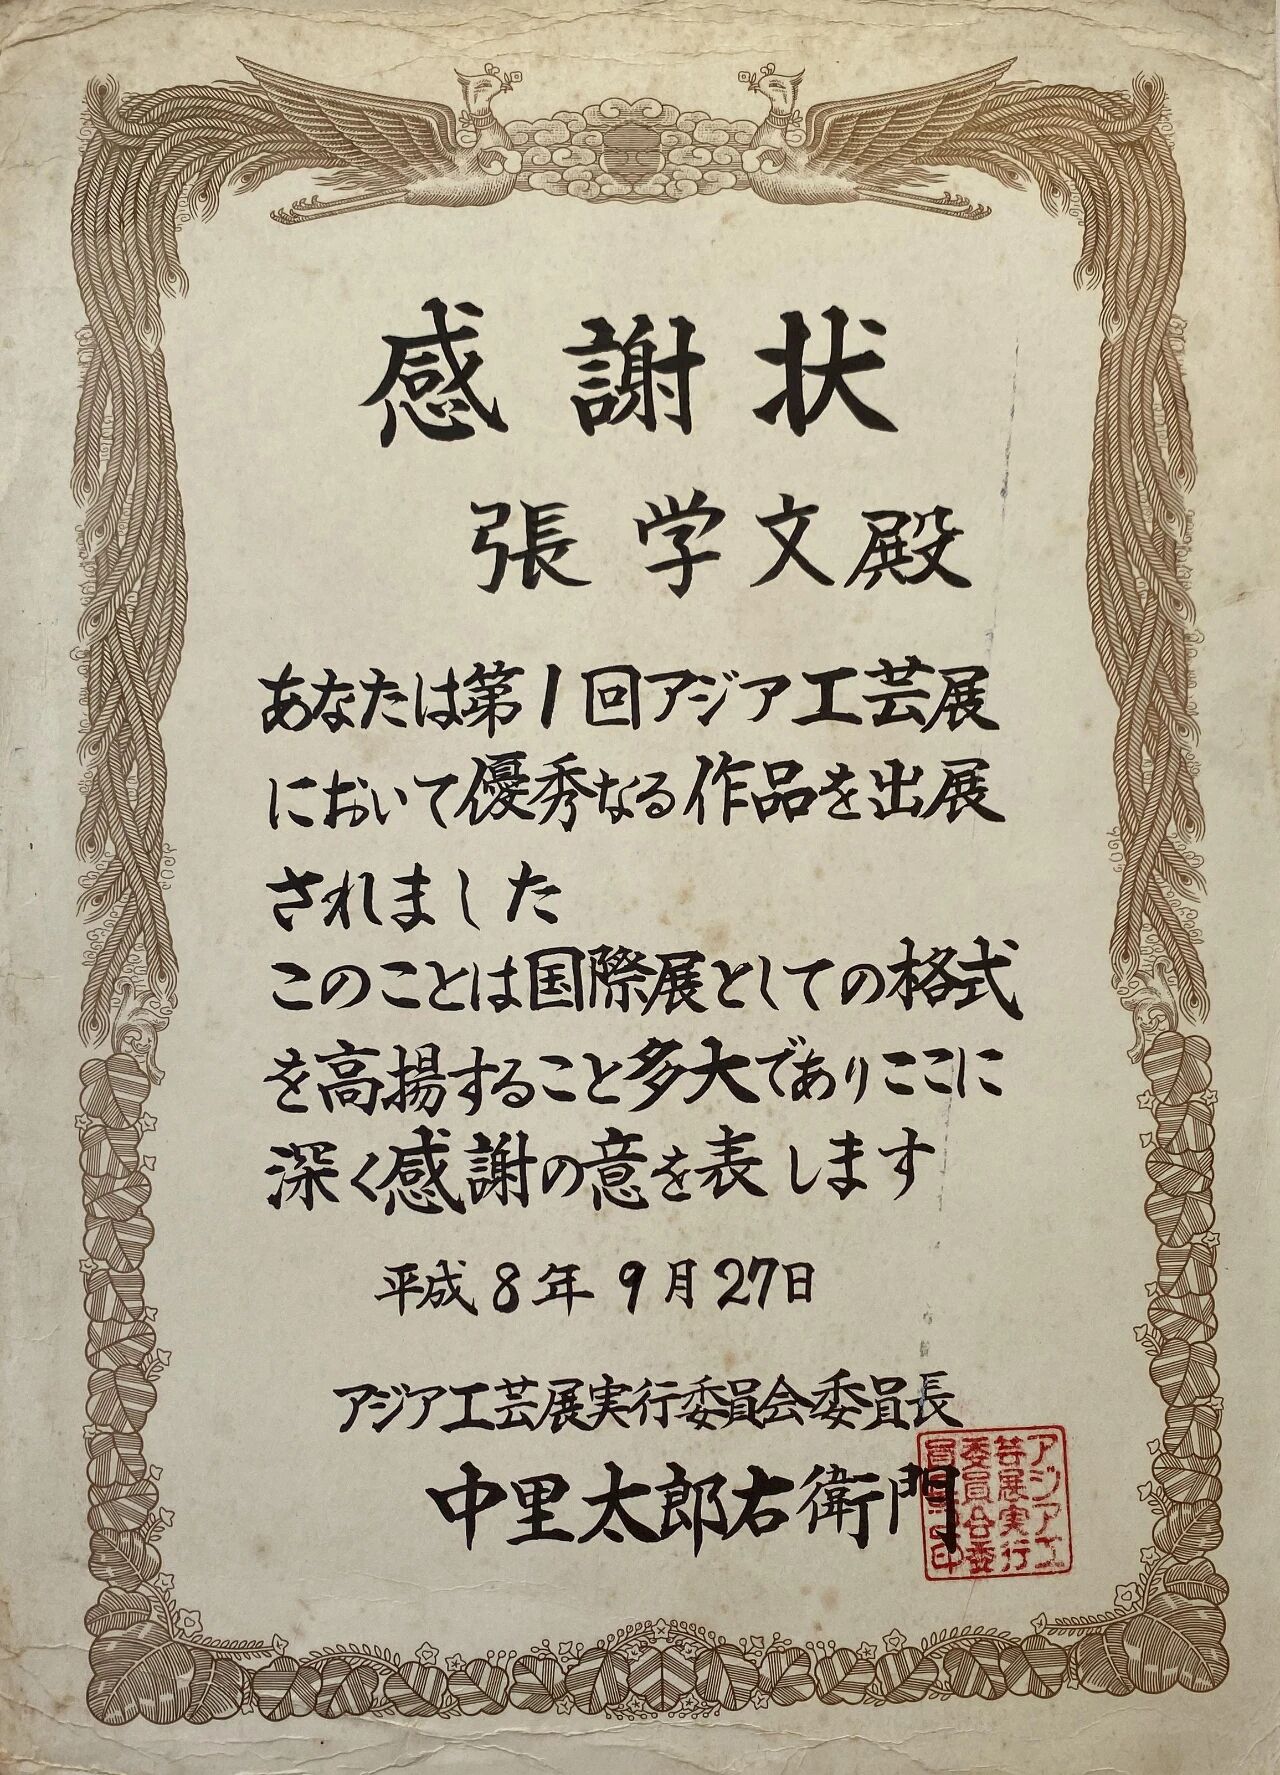 感謝状
張学文殿
あなたは第1回アジア工芸展
において優秀なる作品を出展
されました
このことは国際展としての格式
を高揚すること多大でありここに
深く感謝の意を表します
平成8年9月27日
アジア工芸展実行委員会委員長
中里太郎右衛門
アジアエ
芸展実行
委員会委
員長之印